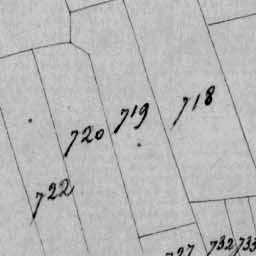 718
719
720
722
732
733